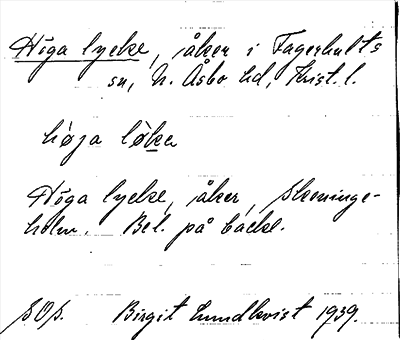 Höga lycke, åker i Fagerhults
sn, N. Åsbo hd, Krist. l.
höja løka
Höga lycke, åker, Skeninge-
holm. Bel. på backe.
SOS. Birgit Lundkvist 1939.